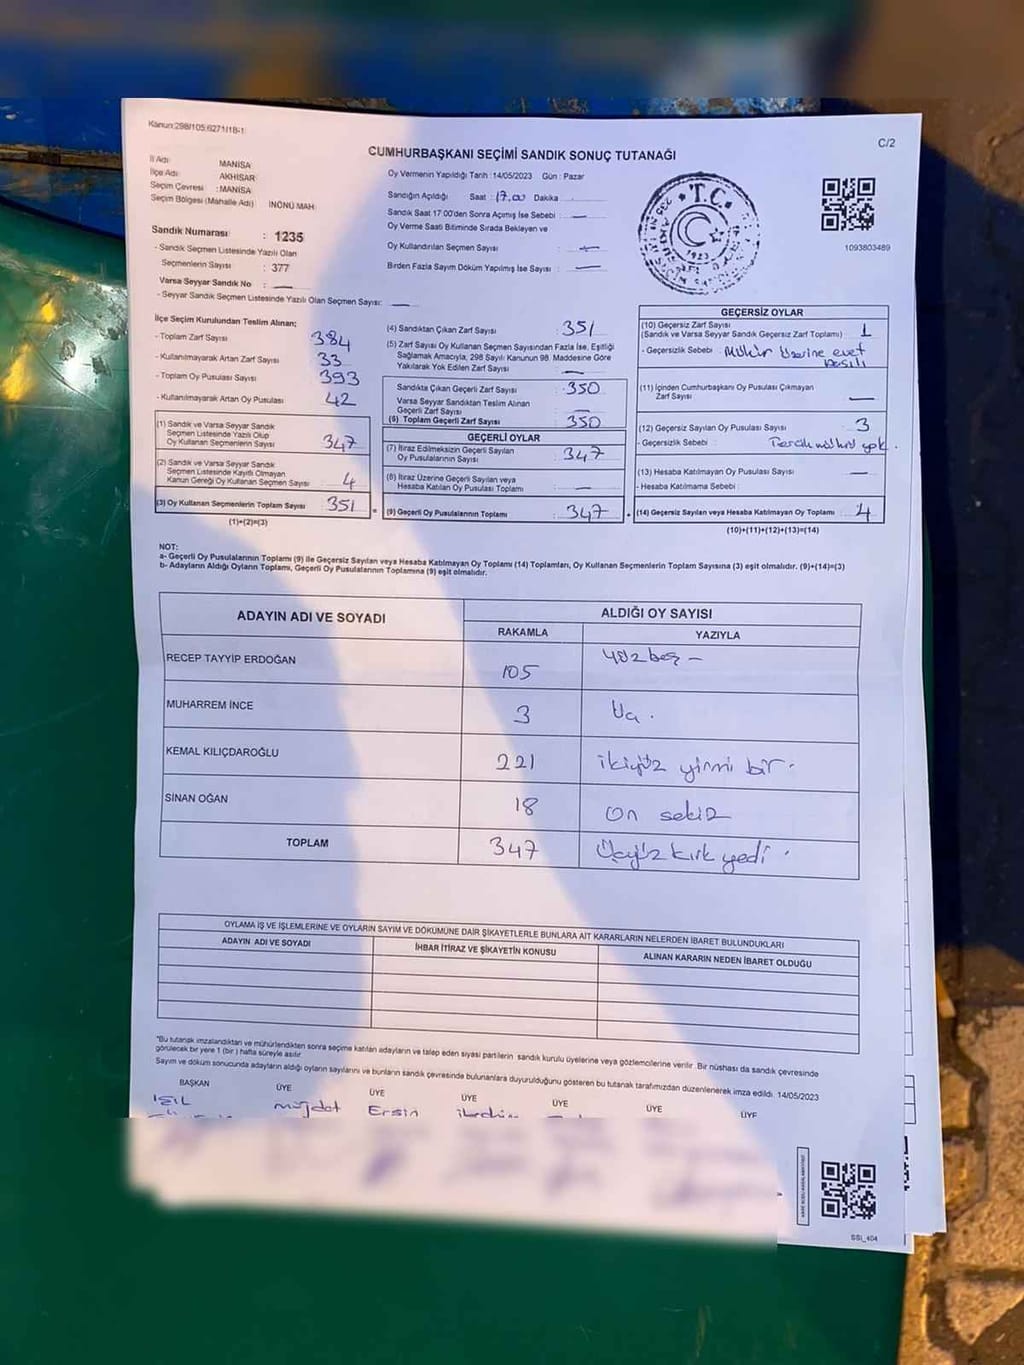 Kanun:298/105;6271/18-1
C/2
CUMHURBAŞKANI SEÇİMİ SANDIK SONUÇ TUTANAĞI
İl Adı : MANİSA
İlçe Adı : AKHİSAR
Seçim Çevresi : MANİSA
Seçim Bölgesi (Mahalle Adı) İNÖNÜ MAH.
Sandık Numarası : 1235
- Sandık Seçmen Listesinde Yazılı Olan
Seçmenlerin Sayısı : 377
Varsa Seyyar Sandık No : —
- Seyyar Sandık Seçmen Listesinde Yazılı Olan Seçmen Sayısı: —
Oy Vermenin Yapıldığı Tarih :14/05/2023 Gün : Pazar
Sandığın Açıldığı Saat : 17.00 Dakika
Sandık Saat 17:00'den Sonra Açımış İse Sebebi : —
Oy Verme Saati Bitiminde Sırada Bekleyen ve
Oy Kullandırılan Seçmen Sayısı : —
Birden Fazla Sayım Döküm Yapılmış İse Sayısı : —
T.C.
1923
1093803489
İlçe Seçim Kurulundan Teslim Alınan;
- Toplam Zarf Sayısı : 384
- Kullanılmayarak Artan Zarf Sayısı : 33
- Toplam Oy Pusulası Sayısı : 393
- Kullanılmayarak Artan Oy Pusulası : 42
(1) Sandık ve Varsa Seyyar Sandık
Seçmen Listesinde Yazılı Olup
Oy Kullanan Seçmenlerin Sayısı : 347
(2) Sandık ve Varsa Seyyar Sandık
Seçmen Listesinde Kayıtlı Olmayan
Kanun Gereği Oy Kullanan Seçmen Sayısı : 4
(3) Oy Kullanan Seçmenlerin Toplam Sayısı : 351
(1)+(2)=(3)
(4) Sandıktan Çıkan Zarf Sayısı : 351
(5) Zarf Sayısı Oy Kullanan Seçmen Sayısından Fazla İse, Eşitliği
Sağlamak Amacıyla, 298 Sayılı Kanunun 98. Maddesine Göre
Yakılarak Yok Edilen Zarf Sayısı : —
Sandıkta Çıkan Geçerli Zarf Sayısı : 350
Varsa Seyyar Sandıktan Teslim Alınan
Geçerli Zarf Sayısı : —
(6) Toplam Geçerli Zarf Sayısı : 350
GEÇERLİ OYLAR
(7) İtiraz Edilmeksizin Geçerli Sayılan
Oy Pusulalarının Sayısı : 347
(8) İtiraz Üzerine Geçerli Sayılan veya
Hesaba Katılan Oy Pusulası Toplamı : —
= (9) Geçerli Oy Pusulalarının Toplamı : 347
GEÇERSİZ OYLAR
(10) Geçersiz Zarf Sayısı
(Sandık ve Varsa Seyyar Sandık Geçersiz Zarf Toplamı) : 1
- Geçersizlik Sebebi : Mühür Üzerine evet
basılı
(11) İçinden Cumhurbaşkanı Oy Pusulası Çıkmayan
Zarf Sayısı : —
(12) Geçersiz Sayılan Oy Pusulası Sayısı : 3
- Geçersizlik Sebebi : Tercih mührü yok.
(13) Hesaba Katılmayan Oy Pusulası Sayısı : —
- Hesaba Katılmama Sebebi :
(14) Geçersiz Sayılan veya Hesaba Katılmayan Oy Toplamı : 4
(10)+(11)+(12)+(13)=(14)
NOT:
a- Geçerli Oy Pusulalarının Toplamı (9) ile Geçersiz Sayılan veya Hesaba Katılmayan Oy Toplamı (14) Toplamları, Oy Kullanan Seçmenlerin Toplam Sayısına (3) eşit olmalıdır. (9)+(14)=(3)
b- Adayların Aldığı Oyların Toplamı, Geçerli Oy Pusulalarının Toplamına (9) eşit olmalıdır.
ADAYIN ADI VE SOYADI ALDIĞI OY SAYISI
RAKAMLA YAZIYLA
RECEP TAYYİP ERDOĞAN 105 yüz beş —
MUHARREM İNCE 3 Üç .
KEMAL KILIÇDAROĞLU 221 ikiyüz yirmi bir .
SİNAN OĞAN 18 on sekiz
TOPLAM 347 Üçyüz kırk yedi .
OYLAMA İŞ VE İŞLEMLERİNE VE OYLARIN SAYIM VE DÖKÜMÜNE DAİR ŞİKAYETLERLE BUNLARA AİT KARARLARIN NELERDEN İBARET BULUNDUKLARI
ADAYIN ADI VE SOYADI İHBAR İTİRAZ VE ŞİKAYETİN KONUSU ALINAN KARARIN NEDEN İBARET OLDUĞU
"Bu tutanak imzalandıktan ve mühürlendikten sonra seçime katılan adayların ve talep eden siyasi partilerin sandık kurulu üyelerine veya gözlemcilerine verilir. Bir nüshası da sandık çevresinde
görülecek bir yere 1 (bir ) hafta süreyle asılır.
Sayım ve döküm sonucunda adayların aldığı oyların sayılarını ve bunların sandık çevresinde bulunanlara duyurulduğunu gösteren bu tutanak tarafımızdan düzenlenerek imza edildi. 14/05/2023
BAŞKAN ÜYE ÜYE ÜYE ÜYE ÜYE ÜYE
IŞIL Müjdat Ersin ibrahim
SSI_404